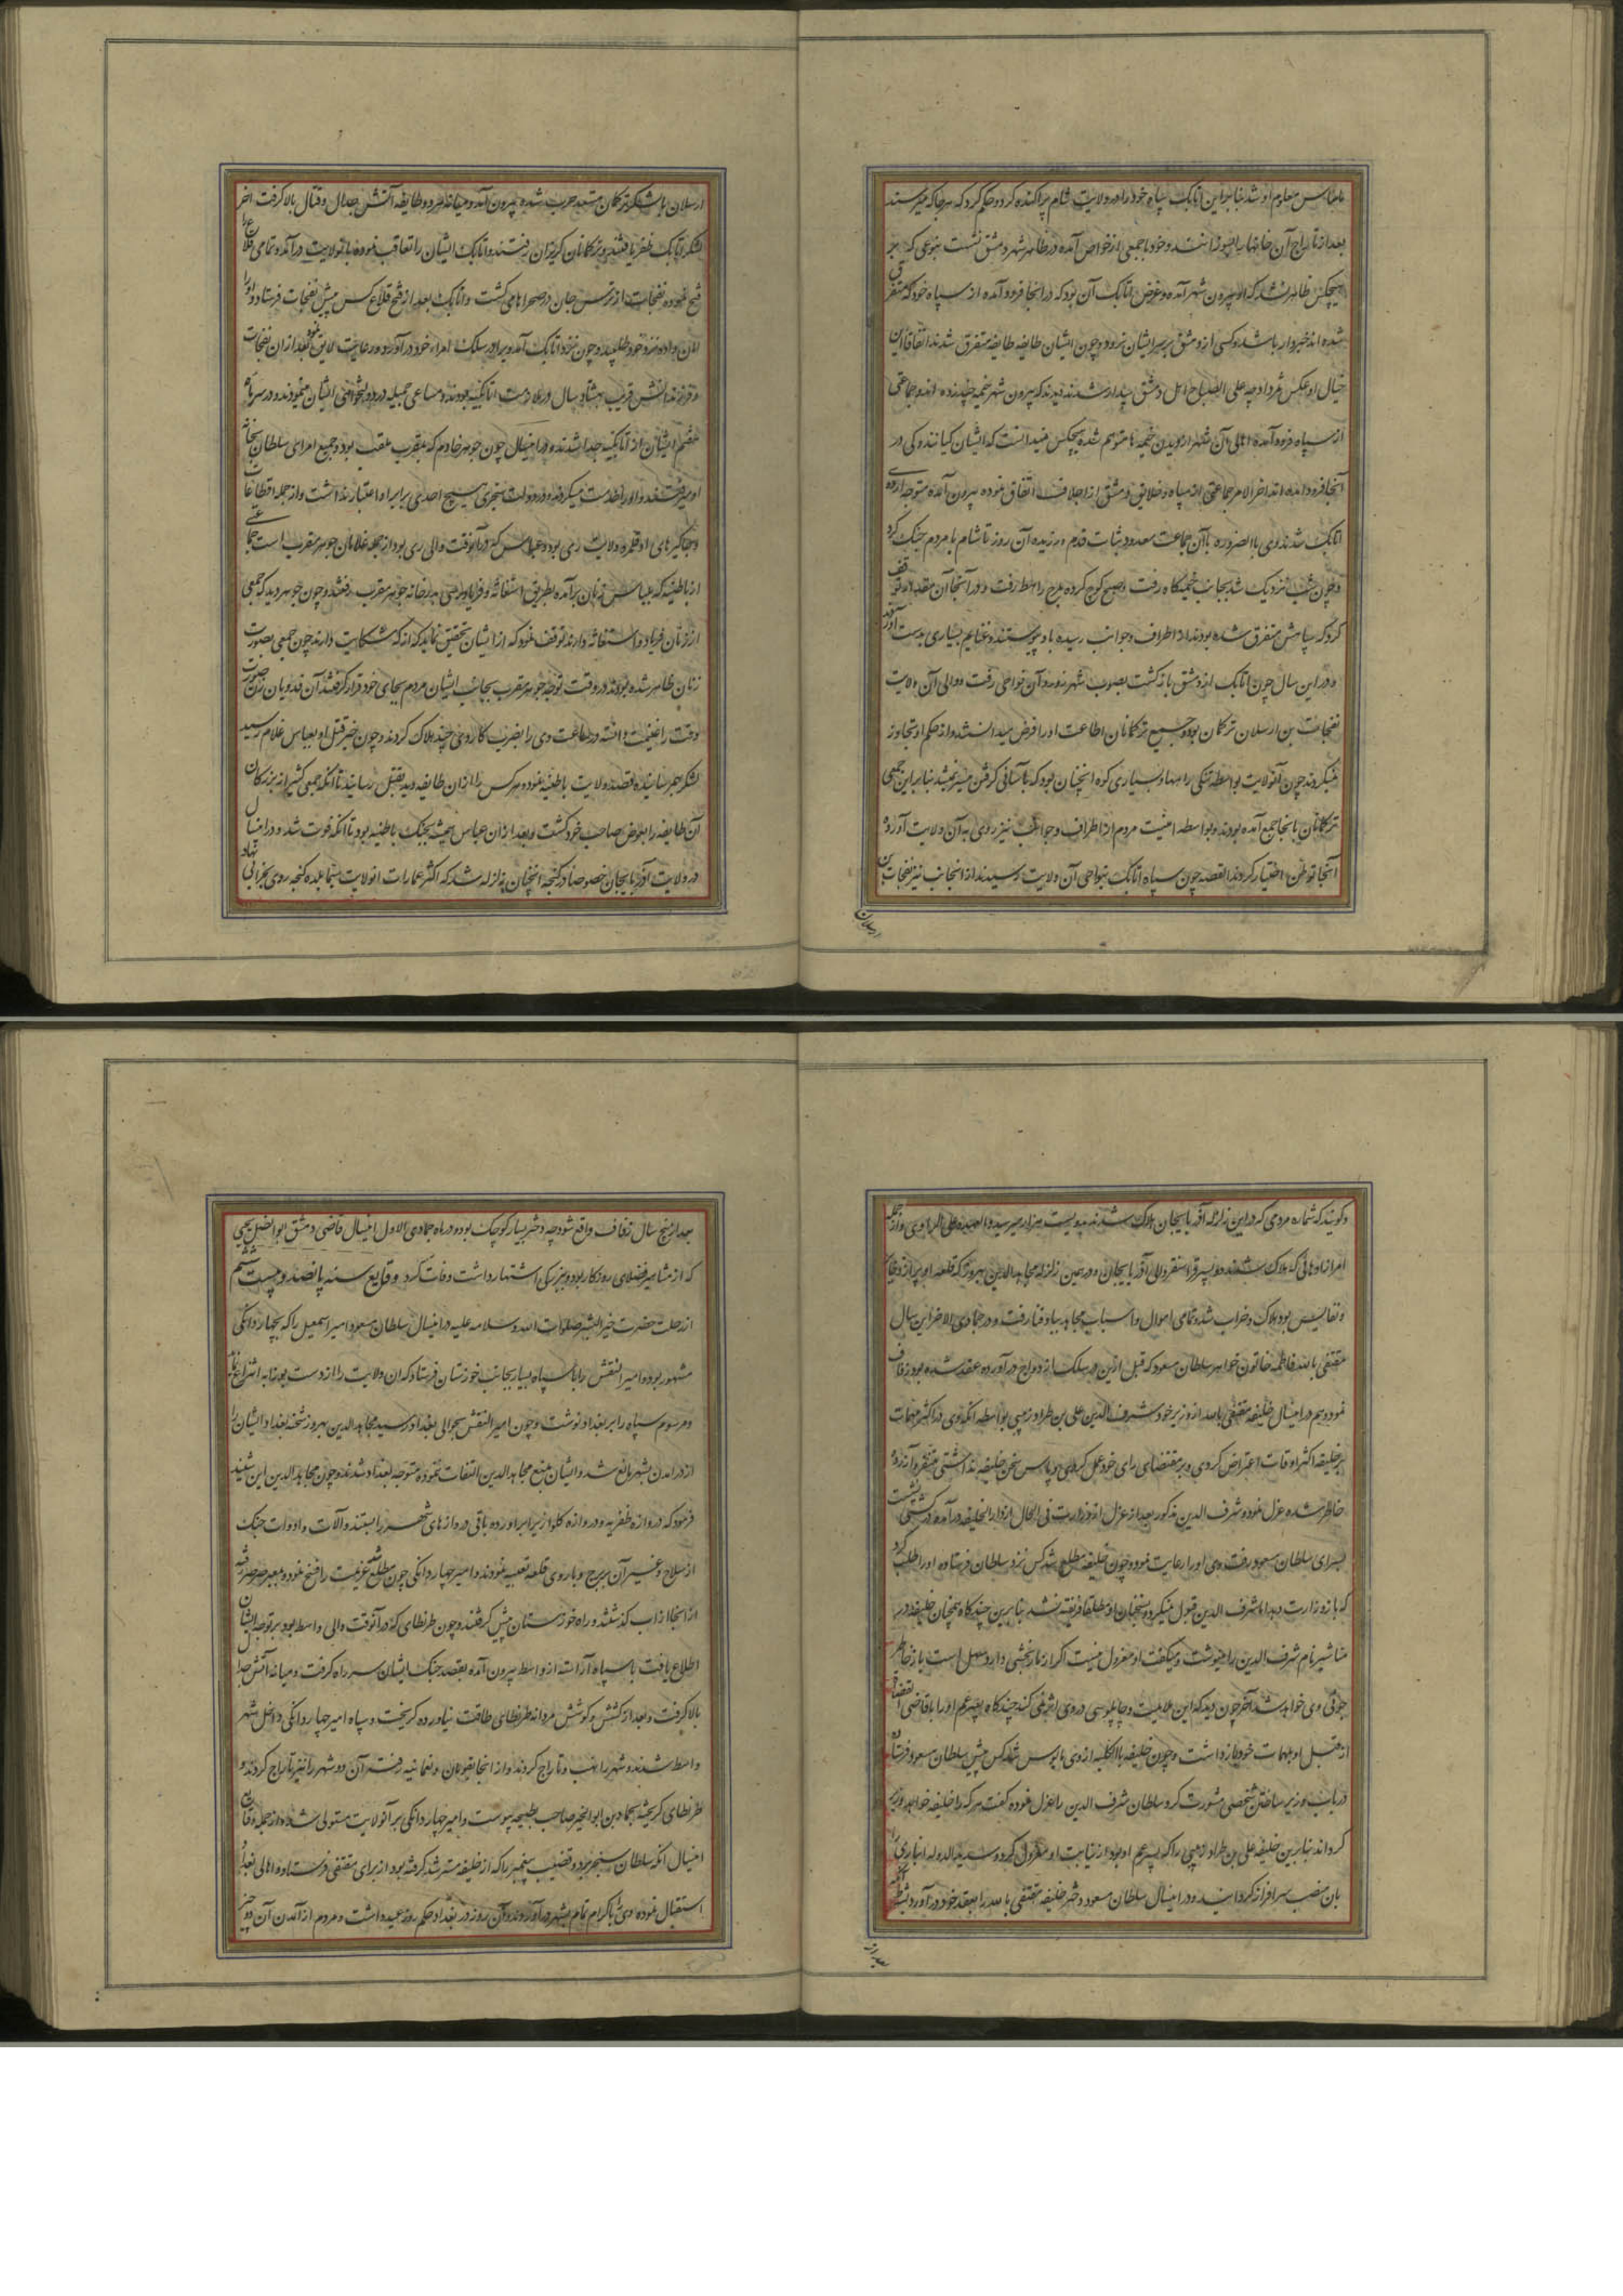 معلوم او شد بنابراین اتابک سپاه خود را در ولایت شام پراکنده کرد و حکم کرد که هر جا که میرسند
بعد از تاراج آن خانها را بسوزانند و خود با جمعی از خواص آمده در ظاهر شهر دمشق نشست بنوعی که بر
هیچکس ظاهر نشد که او بیرون شهر آمده و غرض اتابک آن بود که در انجا فرود آمده از سپاه خود که متفرق
شده اند خبردار باشد و کسی از دمشق بر سر ایشان نرود و چون ایشان طایفه طایفه متفرق شدند اتفاقا این
خیال او عکس نمود چه علی الصباح اهل دمشق بیدار شدند دیدند که بیرون شهر خیمه چند زده اند و جماعتی
از سپاه فرود آمده اهالی آن شهر از دیدن خیمه ها متوهم شده هیچکس نمیدانست که ایشان کیانند و کی در
آنجا فرود آمده اند اخر الامر جماعتی از سپاه و خلایق دمشق از اجلاف اتفاق نموده بیرون آمده متوجه اردوی
اتابک شدند وی بالضروره با آن جماعت معدود ثبات قدم ورزیده آن روز تا شام با مردم جنک کرد
و چون شب نزدیک شد بجانب خیمکاه رفت و صبح کوچ کرده بمرج راهط رفت و در آنجا آن مقدار توقف
کرد که سپاهش متفرق شده بودند از اطراف و جوانب رسیده باو پیوستند و غنایم بسیاری بدست آوردند
و در این سال چون اتابک از دمشق باز کشت بصوب شهرزور و آن نواحی رفت و والی آن ولایت
قفجات بن ارسلان ترکمان بود و جمیع ترکمانان اطاعت او را فرض میدانستند و از حکم او تجاوز
نمیکردند چون آنولایت بواسطه تنکی راهها و بسیاری کوه انچنان بود که بآسانی کرفتن میسر نمیشد بنابراین جمعی
ترکمانان بانجا جمع آمده بودند و بواسطه امنیت مردم از اطراف و جوانب نیز روی به آن ولایت آورده
آنجا توطن اختیار کردند القصه چون سپاه اتابک بنواحی آن ولایت رسیدند از انجانب نیز قفجات بن
ارسلان
ارسلان با لشکر ترکمان مستعد حرب شده بیرون آمد و میانه هر دو طایفه آتش جدال و قتال بالا کرفت آخر
لشکر اتابک ظفر یافتند و ترکمانان کریزان رفتند و اتابک ایشان را تعاقب نموده بانولایت درآمد و تمامی قلاع را
فتح نموده قفجات از ترس جان در صحراها می کشت و اتابک بعد از فتح قلاع کس پیش قفجات فرستاد و او را
امان داده نزد خود طلبید و چون نزد اتابک آمد ویرا در سلک امراء خود درآورد و رعایت لایق نمود بعد از ان قفجات
و فرزندانش قریب بهشتاد سال در ملازمت اتابکیه بودند و مساعی جمیله در دولتخواهی ایشان مینمودند و در سر ماه
ششم ایشان از اتابکیه جدا شدند و در اینسال چون جوهر خادم که بمقرب ملقب بود و جمیع امرای سلطان بخانه
او میرفتند و او را خدمت میکردند و در دولت سنجری هیچ احدی برابر او اعتبار نداشت و از جمله اقطاعات
و جاکیرهای او قلمرو ولایت ری بود و عباس که درآنوقت والی ری بود از جمله غلامان جوهر مقرب است جماعتی
از باطنیه که بلباس زنان برآمده بطریق استغاثه و فریاد رسی بدر خانه جوهر مقرب رفتند و چون جوهر دید که جمعی
از زنان فریاد و استغاثه دارند توقف نمود که از ایشان تحقیق نماید که از که شکایت دارند چون جمعی بصورت
زنان ظاهر شده بودند در وقت توجه جوهر مقرب بجانب ایشان مردم بجای خود قرار کرفتند آن فدویان زن صورت
وقت را غنیمت دانسته در ساعت وی را بضرب کاردی چند هلاک کردند و چون خبر قتل او بعباس غلام رسید
لشکر بهم رسانیده قصد ولایت باطنیه نموده هر کس را از ان طایفه دید بقتل رسانید تا انکه جمعی کثیر از بزرکان
آن طایفه را بعوض صاحب خود کشت و بعد ازان عباس همیشه بجنک باطنیه بود تا آنکه فوت شد و در اینسال
در ولایت آذربایجان خصوصا در کنجه انچنان زلزله شد که اکثر عمارات انولایت سیما بلده کنجه روی بخرابی نهاد
و کویند که شماره مردمی که در این زلزله آذربایجان هلاک شدند بدویست هزار میرسید والعهده علی الراوی و از جمله
امرازادهائی که هلاک شدند دو پسر قراسنقر والی آذربایجان و در همین زلزله مجاهدالدین بهروز که قلعه او پر از ذخایر
و نفایس بود هلاک و خراب شد و تمامی اموال و اسباب مجاهد بباد فنا رفت و در جمادی الاخر این سال
مقتفی بالله فاطمه خاتون خواهر سلطان مسعود که قبل ازین در سلک ازدواج درآورده عقد شده بود زفاف
نمود و هم در اینسال خلیفه مقتفی بالله از وزیر خود شرف الدین علی بن طراد زینبی بواسطه انکه وی در اکثر مهمات
بر خلیفه اکثر اوقات اعتراض کردی و بر مقتضای رای خود عمل کردی و پاس سخن خلیفه نداشتی متنفر و آزرده
خاطر شده عزل نموده شرف الدین مذکور بعد از عزل از وزارت فی الحال از دار الخلیفه درآمده در کشتی نشست
بسرای سلطان مسعود رفت وی او را رعایت نموده چون خلیفه مطلع شد کس نزد سلطان فرستاده او را طلب کرد
که باز وزارت دهد اما شرف الدین قبول نمیکرد و بسخنان او مطلقا فریفته نشد بنابرین چند کاه همچنان خلیفه در
مناشیر نام شرف الدین را مینوشت و میکفت او معزول نیست اکر از ما رنجشی دارد سهل است باز خاطر
جوئی وی خواهد شد آخر چون دید که این ملایمت و چاپلوسی در وی اثر نمی کند چند کاه پسر عم او را با قاضی القضاة
از قبل او بمهمات خود باز داشت و چون خلیفه بالکلیه از وی مایوس شد کس پیش سلطان مسعود فرستاده
در باب وزیر ساختن شخصی مشورت کرد سلطان شرف الدین را عزل نموده کفت هر که را خلیفه خواهد وزیر
کرداند بنابرین خلیفه علی بن طراد زینبی را که پسر عم او بود از نیابت او معزول کرد و سدیدالدوله انباری را
بان منصب سرافراز کردانید و در اینسال سلطان مسعود دختر خلیفه مقتفی بالله را بعقد خود درآورد بشرط آنکه
بعد از
بعد از پنج سال زفاف واقع شود چه دختر بسیار کوچک بود و در ماه جمادی الاول اینسال قاضی دمشق ابوالفضل یحیی
که از مشاهیر فضلای روزکار بود و ببزرکی اشتهار داشت وفات کرد وقایع سنه پانصد و بیست ششم
از رحلت حضرت خیر البشر صلوات الله و سلامه علیه در اینسال سلطان مسعود امیر اسمعیل را که بچهاردانکی
مشهور بود و امیر النقش را با سپاه بسیار بجانب خوزستان فرستاد که ان ولایت را از دست بوزابه انتزاع نمایند
و مرسوم سپاه را بر بغداد نوشت و چون امیر النقش بحوالی بغداد رسید مجاهدالدین بهروز شحنه بغداد ایشان را
از درامدن بشهر مانع شد و ایشان بمنع مجاهدالدین التفات ننموده متوجه بغداد شدند و چون مجاهدالدین این شنید
فرمود که دروازه ظفریه و دروازه کلواز برابر آورده باقی دروازهای شهر را ببستند و آلات و ادوات جنک
از سلاح و غیر آن ببرج و باروی قلعه تعبیه نمودند و امیر چهاردانکی چون مطلع شد عزیمت را فسخ نموده بمعبر صرصر رفته
از انجا از اب کذشتند و راه خوزستان پیش کرفتند و چون طرنطای که درآنوقت والی واسط بود بر توجه ایشان
اطلاع یافت با سپاه آراسته از واسط بیرون آمده بقصد جنک ایشان سر راه کرفت و میانه آتش جدال
بالا کرفت و بعد از کشش و کوشش مردانه طرنطای طاقت نیاورده کریخت و سپاه امیر چهاردانکی داخل شهر
واسط شدند و شهر را نهب و تاراج کردند و از انجا بنعمانیه رفته آن دو شهر را نیز تاراج کردند و
طرنطای کریخته بحماد بن ابوالخیر صاحب بطیحه پیوست و امیر چهاردانکی بر آنولایت مستولی شد و از جمله وقایع
اینسال آنکه سلطان سنجر برد و قضیب پیغمبر را که از خلیفه مسترشد کرفته بود از برای مقتفی فرستاد و اهالی بغداد
استقبال نموده وی را باکرام تمام بشهر درآوردند و آن روز در بغداد حکم روز عید داشت و مردم از آمدن آن دو چیز